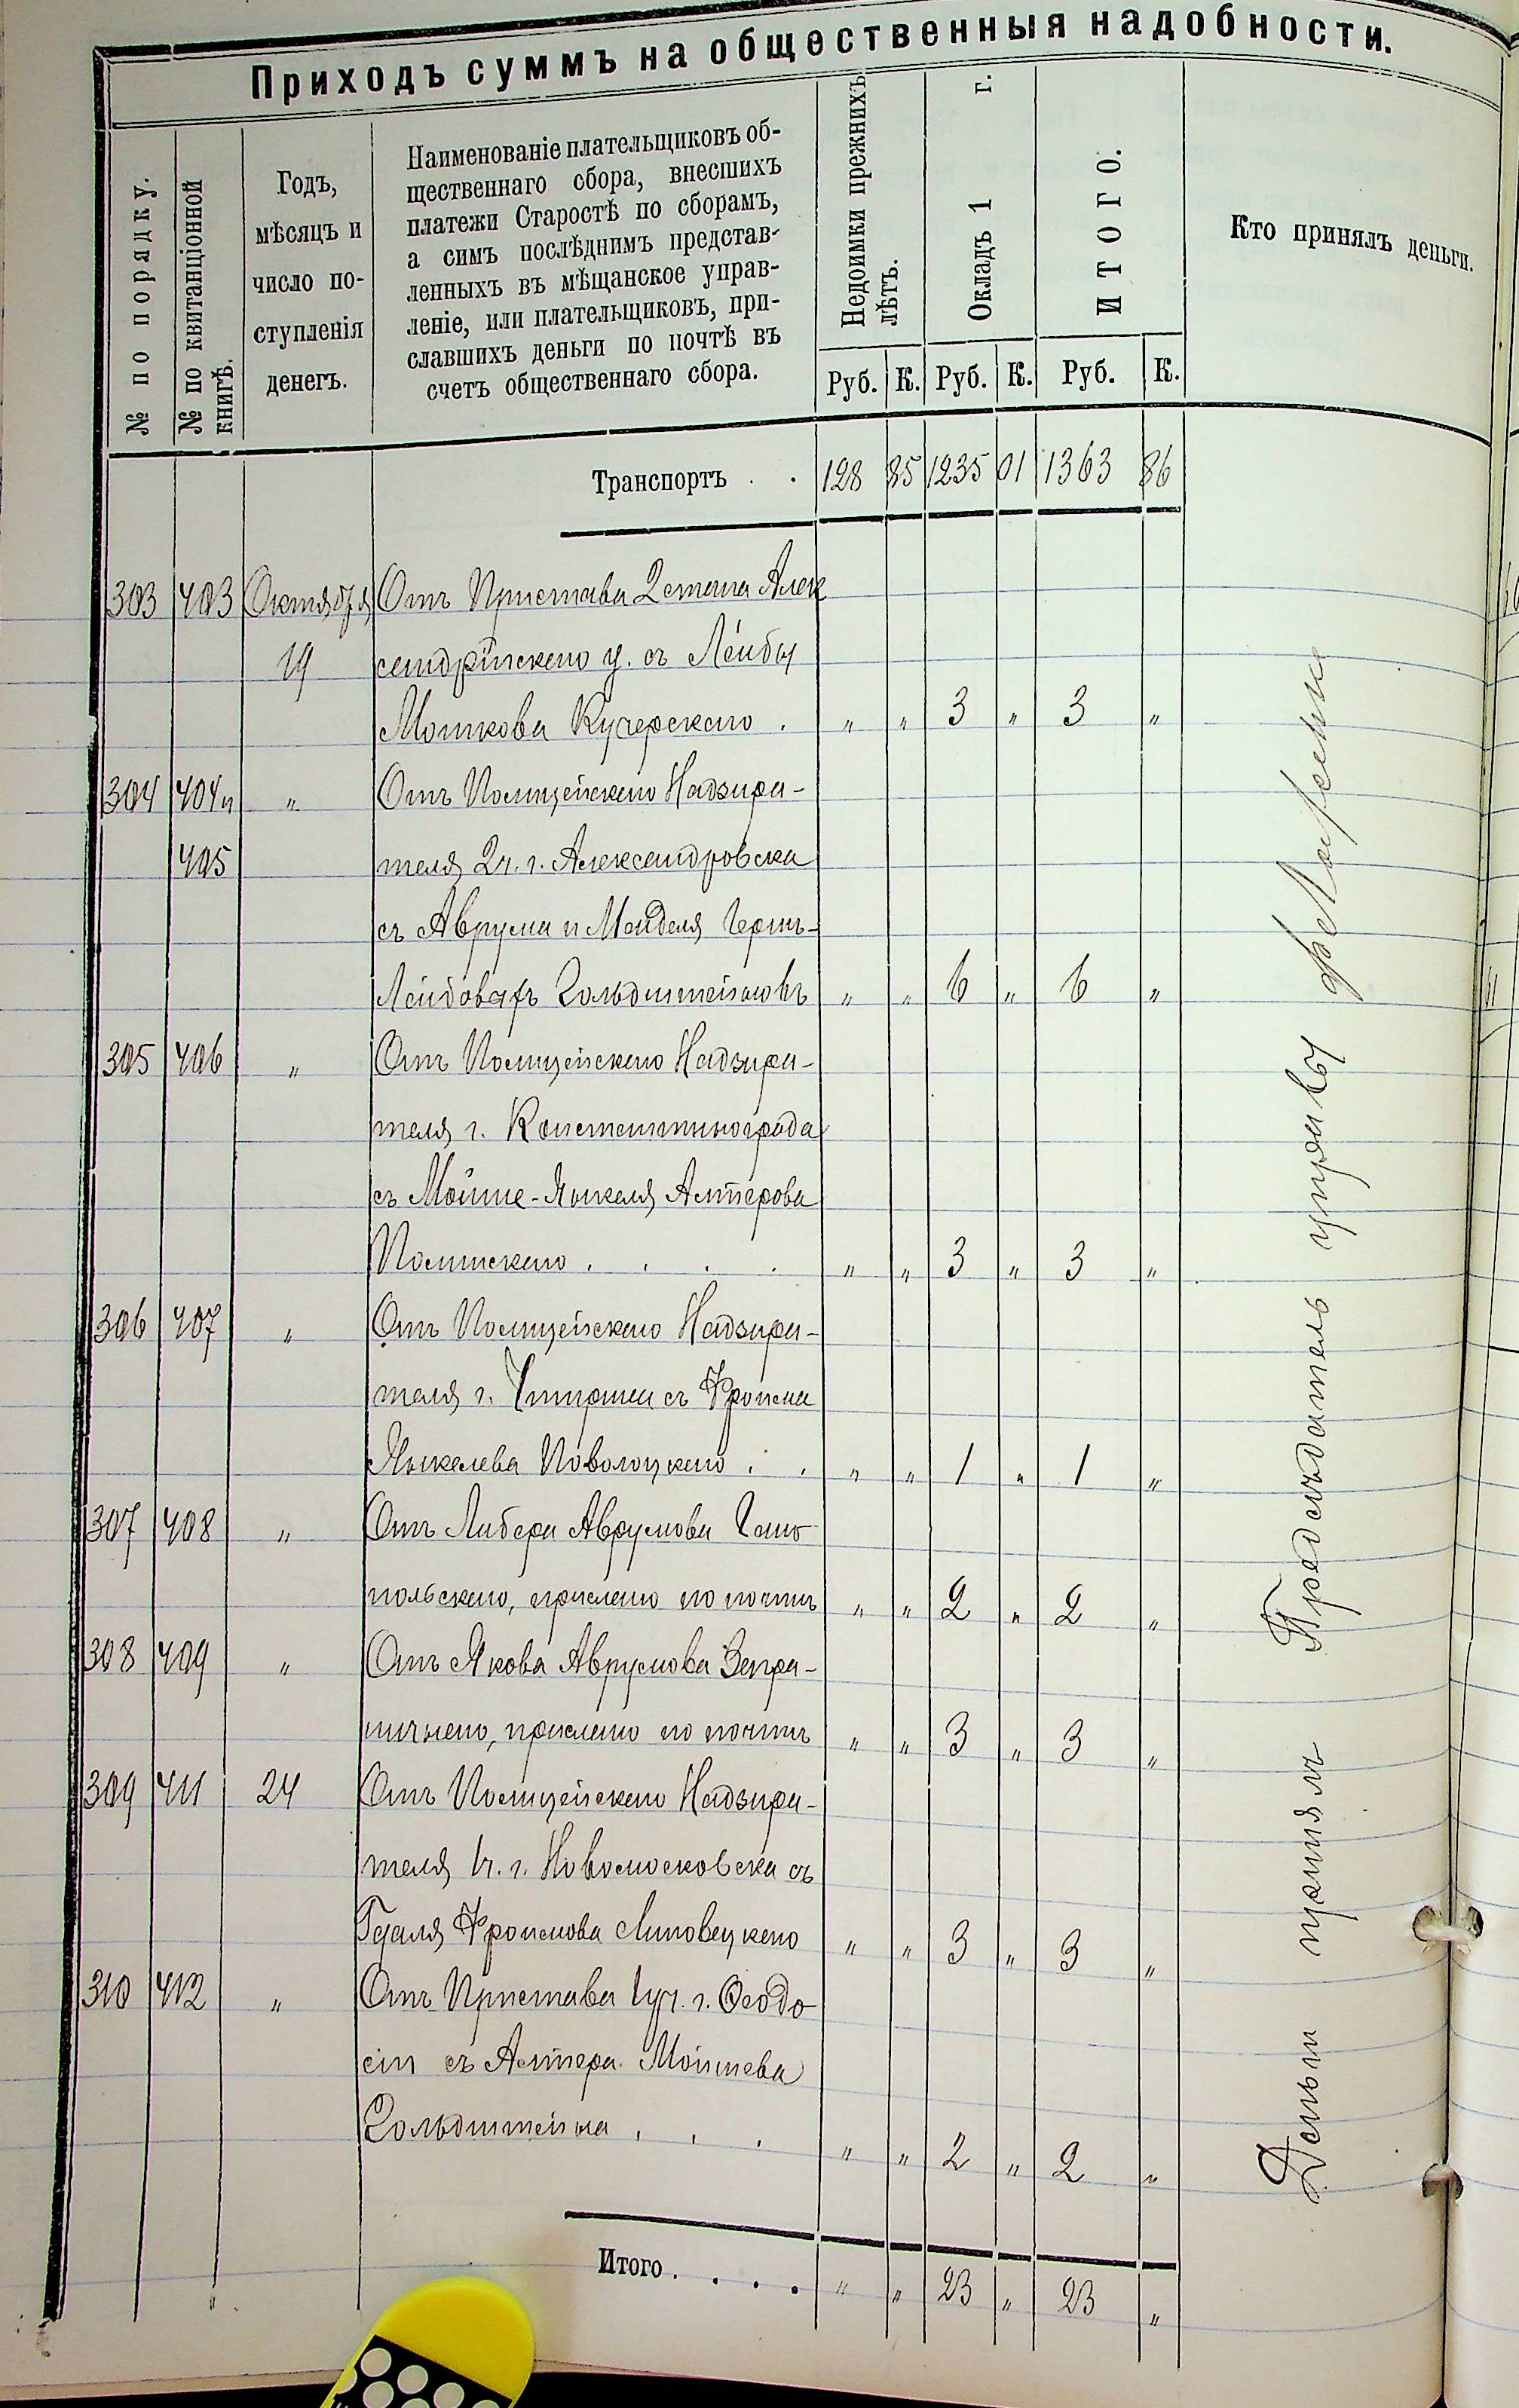 Приходъ суммъ на общественныя надобности.
№ по порядку.
№ по квитанціонной
книгѣ.
Годъ,
мѣсяцъ и
число по-
ступленія
денегъ.
Наименованіе плательщиковъ об-
щественнаго сбора, внесшихъ
платежи Старостѣ по сборамъ,
а симъ послѣднимъ представ-
ленныхъ въ мѣщанское управ-
леніе, или плательщиковъ, при-
славшихъ деньги по почтѣ въ
счетъ общественнаго сбора.
Недоимки прежнихъ
лѣтъ.
Окладъ 1 г.
ИТОГО.
Кто принялъ деньги.
Руб. К. Руб. К. Руб. К.
Транспортъ . . 128 85 1235 01 1363 86
303 403 Октября Отъ Пристава 2 стана Алек
19 сандрійскаго у. съ Лейбы
Мошкова Кучерскаго . „ „ 3 „ 3 „
304 404 и „ Отъ Полицейскаго Надзира-
405 теля 2 ч. г. Александровска
съ Аврума и Менделя Герш-
Лейбовыхъ Гольдштейновъ „ „ 6 „ 6 „
305 406 „ Отъ Полицейскаго Надзира-
теля г. Константинограда
съ Мойше-Янкеля Алтерова
Полинскаго . . . . „ „ 3 „ 3 „
306 407 „ Отъ Полицейскаго Надзира-
теля г. Чигирина съ Фроима
Янкелева Поволоцкаго . . „ „ 1 „ 1 „
307 408 „ Отъ Либера Аврумова
польскаго, прислано по почтѣ „ „ 2 „ 2 „
308 409 „ Отъ Якова Аврумова Загра-
ничнаго, прислано по почтѣ „ „ 3 „ 3 „
309 411 24 Отъ Полицейскаго Надзира-
теля 1 ч. г. Новомосковска съ
Гдаля Фроимова Липовецкаго „ „ 3 „ 3 „
310 412 „ Отъ Пристава 1 уч. г. Ѳеодо
сіи съ Алтера Мойшева
Гольдштейна . . . „ „ 2 „ 2 „
Итого . . . . „ „ 23 „ 23 „
Деньги принялъ Предсѣдатель управы